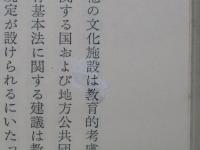 他の文化施設は教育的考慮
関する国および地方公共団
育基本法に関する建議は教
規定が設けられるにいたっ